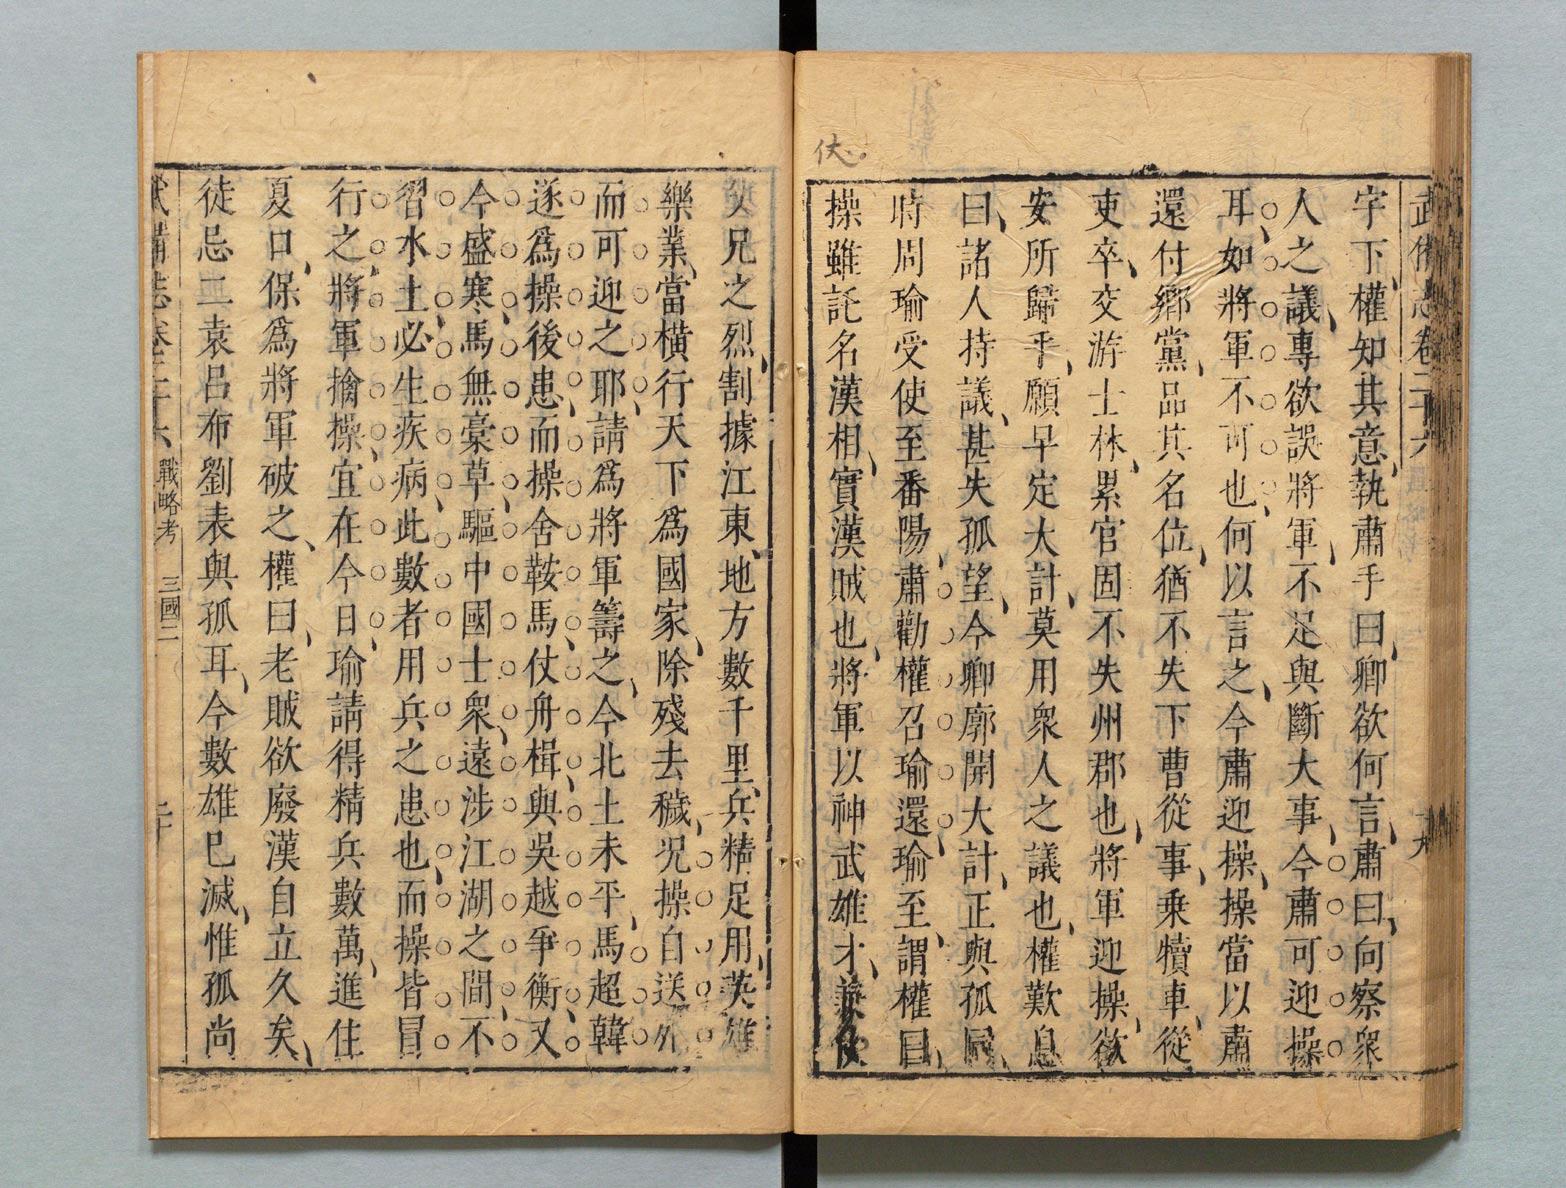 武備志卷二十六
十九
字下權知其意執肅手曰卿欲何言肅曰向察衆
人之議專欲誤將軍不足與斷大事今肅可迎操
耳如將軍不可也何以言之今肅迎操操當以肅
還付鄉黨品其名位猶不失下曹從事乗犢車從
吏卒交游士林累官固不失州郡也將軍迎操欲
安所歸乎願早定大計莫用衆人之議也權歎息
曰諸人持議甚失孤望今卿廓開大計正與孤同
時周瑜受使至番陽肅勸權召瑜還瑜至謂權曰
操雖託名漢相實漢賊也將軍以神武雄才兼仗
伏
父兄之烈割據江東地方數千里兵精足用英雄
樂業當橫行天下爲國家除殘去穢况操自送死
而可迎之耶請爲將軍籌之今北土未平馬超韓
遂爲操後患而操舍鞍馬仗舟楫與吳越爭衡又
今盛寒馬無藁草驅中國士衆遠涉江湖之間不
習水土必生疾病此數者用兵之患也而操皆冒
行之將軍擒操宜在今日瑜請得精兵數萬進住
夏口保爲將軍破之權曰老賊欲廢漢自立久矣
徒忌二袁呂布劉表與孤耳今數雄已滅惟孤尚
武備志卷二十六 戰略考 三國二
二十